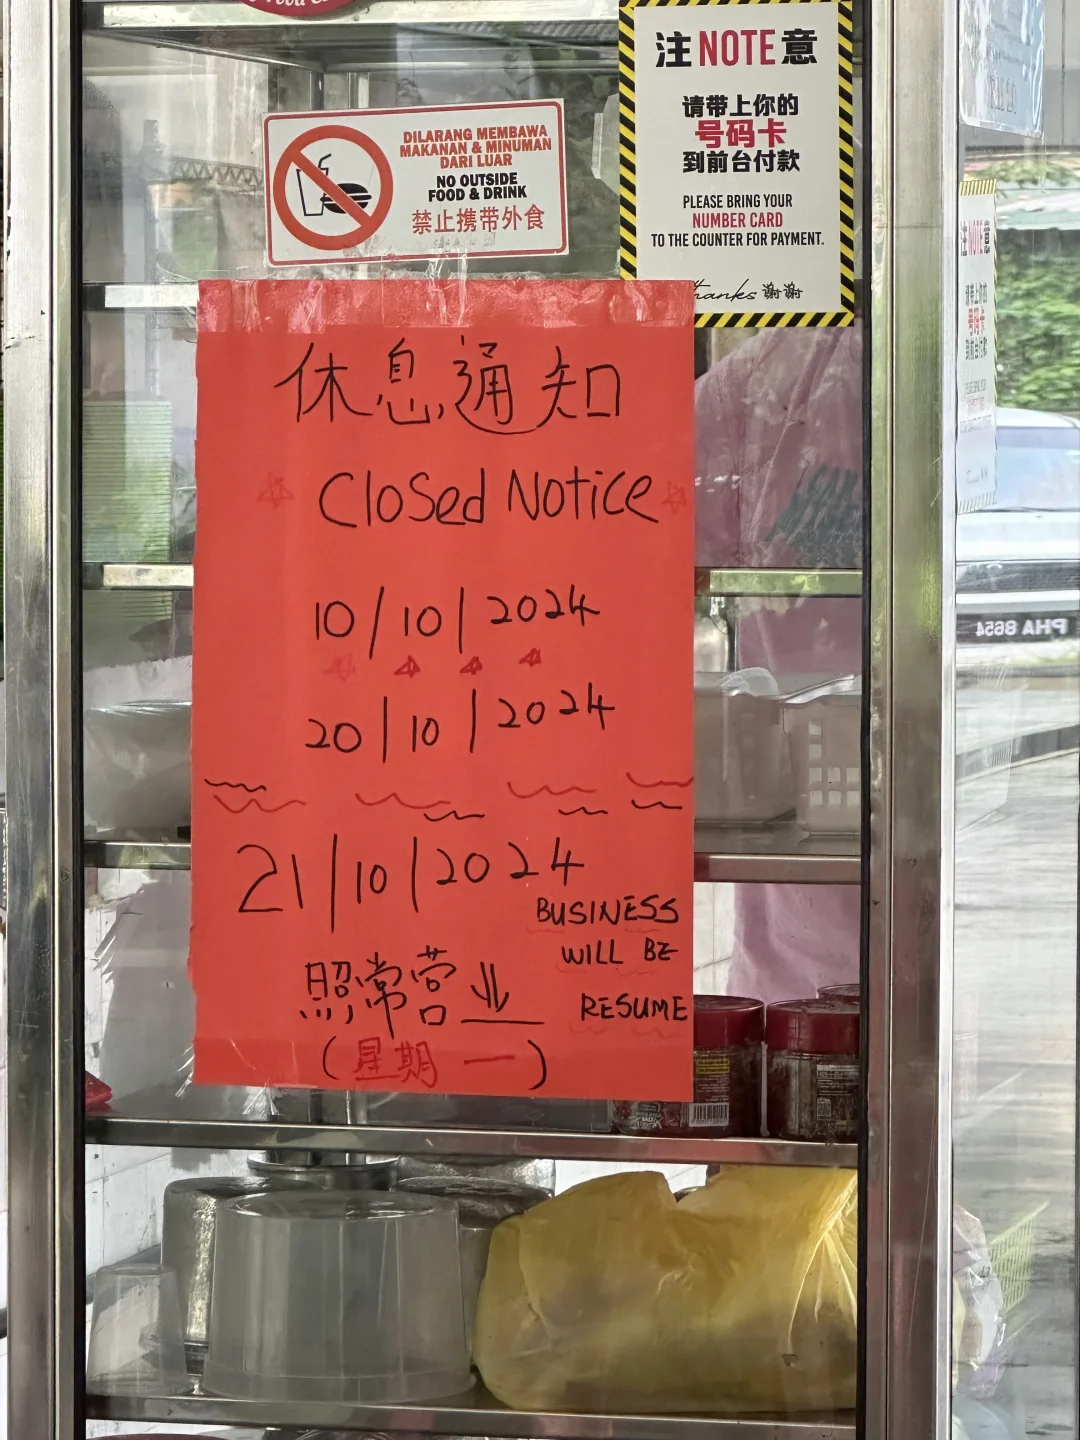 DILARANG MEMBAWA
MAKANAN & MINUMAN
DARI LUAR
NO OUTSIDE
FOOD & DRINK
禁止携带外食
注 NOTE 意
请带上你的
号码卡
到前台付款
PLEASE BRING YOUR
NUMBER CARD
TO THE COUNTER FOR PAYMENT.
thanks 谢谢
休息通知
Closed Notice
10/10/2024
20/10/2024
21/10/2024
BUSINESS
WILL BE
RESUME
照常营业
(星期一)
PHA 8654